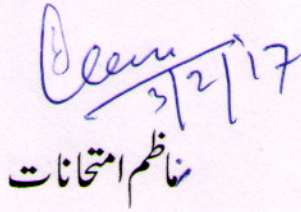 3/2/17
ناظم امتحانات